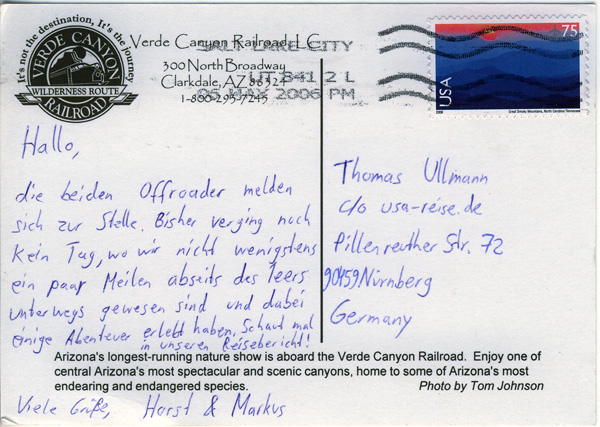 It's not the destination, It's the journey
VERDE CANYON
WILDERNESS ROUTE
RAILROAD
Verde Canyon Railroad LC
300 North Broadway
Clarkdale, AZ 86324
1-800-293-7245
SALT LAKE CITY
UT 841 2 L
05 MAY 2006 PM
75
USA
2006
Great Smoky Mountains, North Carolina/Tennessee
Hallo,
die beiden Offroader melden
sich zur Stelle. Bisher verging noch
kein Tag, wo wir nicht wenigstens
ein paar Meilen abseits des Teers
unterwegs gewesen sind und dabei
einige Abenteuer erlebt haben. Schaut mal
in unseren Reisebericht!
Thomas Ullmann
c/o usa-reise.de
Pillenreuther Str. 72
90459 Nürnberg
Germany
Arizona's longest-running nature show is aboard the Verde Canyon Railroad. Enjoy one of
central Arizona's most spectacular and scenic canyons, home to some of Arizona's most
endearing and endangered species.
Photo by Tom Johnson
Viele Grüße, Horst & Markus